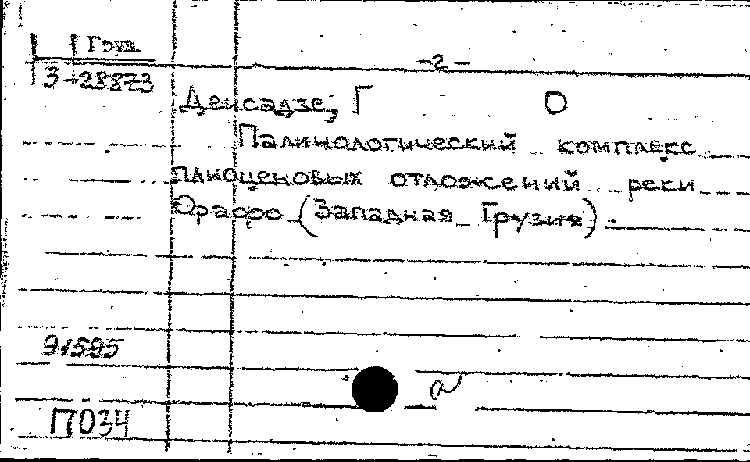 Груз.
-2-
З-28873
Деисадзе, Г О
Палинологический комплекс
плиоценовых отложений реки
Орасро (Западная Грузия).
91595
а
П034